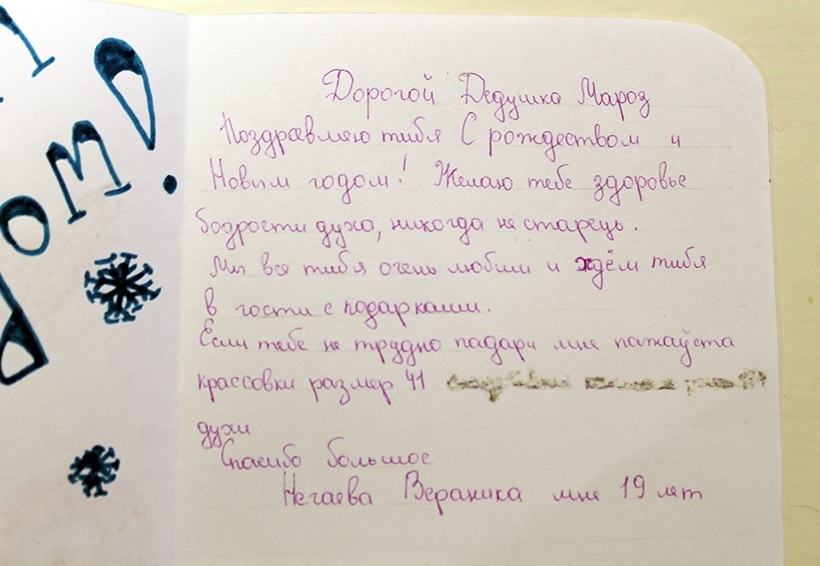 ом!
Дорогой Дедушка Мароз
Поздравляю тибя С рождеством и
Новым годом! Желаю тебе здоровье
бодрости духа, никогда не старець.
Мы все тибя очень любим и ждём тибя
в гости с подарками.
Если тебе не трудно падари мне пажаўста
крассовки размер 41
духи
Спасибо большое
Негаева Вераника мне 19 лет